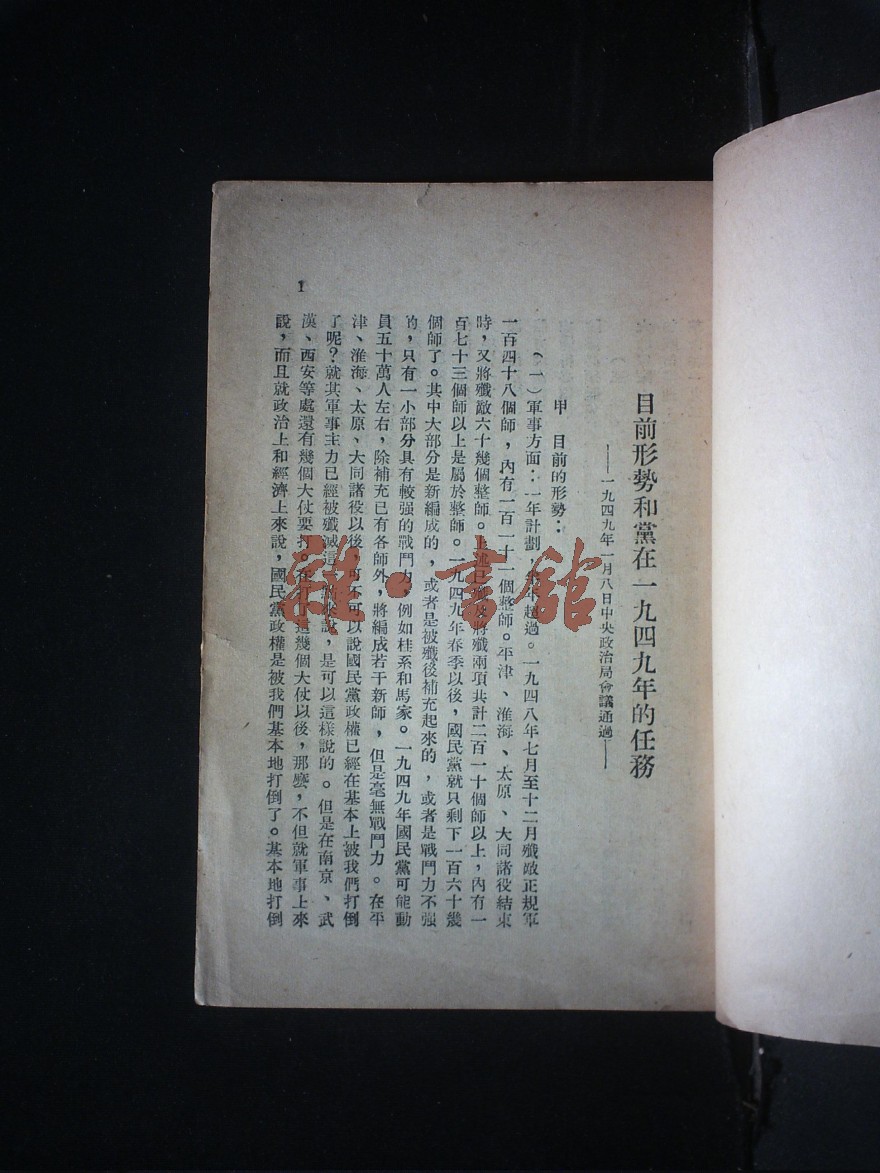 目前形勢和黨在一九四九年的任務
——一九四九年一月八日中央政治局會議通過——
甲 目前的形勢：
（一）軍事方面：一年計劃，半年超過。一九四八年七月至十二月殲敵正規軍
一百四十八個師，內有一百一十一個整師。平津、淮海、太原、大同諸役結束
時，又將殲敵六十幾個整師。上述已殲及將殲兩項共計二百一十個師以上，內有一
百七十三個師以上是屬於整師。一九四九年春季以後，國民黨就只剩下一百六十幾
個師了。其中大部分是新編成的，或者是被殲後補充起來的，或者是戰鬥力不强
的，只有一小部分具有較强的戰鬥力，例如桂系和馬家。一九四九年國民黨可能動
員五十萬人左右，除補充已有各師外，將編成若干新師，但是毫無戰鬥力。在平
津、淮海、太原、大同諸役以後，可不可以說國民黨政權已經在基本上被我們打倒
了呢？就其軍事主力已經被殲滅這一點來說，是可以這樣說的。但是在南京、武
漢、西安等處還有幾個大仗要打。在打了這幾個大仗以後，那麼，不但就軍事上來
說，而且就政治上和經濟上來說，國民黨政權是被我們基本地打倒了。基本地打倒
1
雜·書館